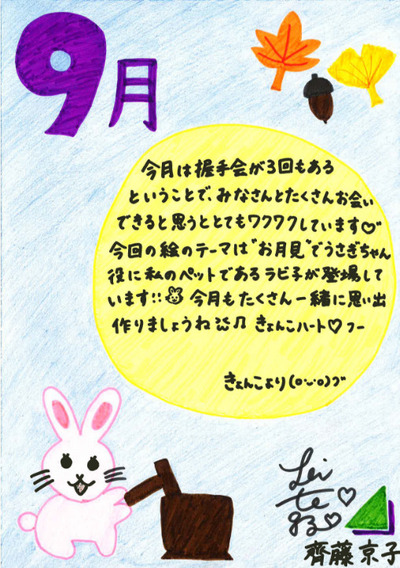 9月
今月は握手会が3回もある
ということで、みなさんとたくさんお会い
できると思うととてもワクワクしています♡
今回の絵のテーマは"お月見"でうさぎちゃん
役に私のペットであるラビ子が登場して
います!!🐰今月もたくさん一緒に思い出
作りましょうね♫ きょんこハート♡フー
きょんこより(o˘◡˘o)づ
齊藤 京子